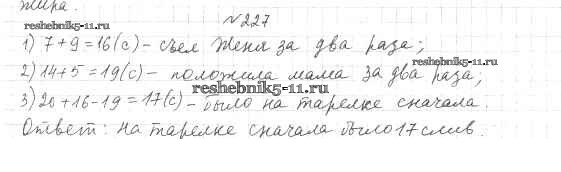 жира.
№227
reshebnik5-11.ru
1) 7+9=16(с) – съел Женя за два раза;
reshebnik5-11.ru
2) 14+5=19(с) – положила мама за два раза;
reshebnik5-11.ru
3) 20+16-19=17(с) – было на тарелке сначала.
Ответ: на тарелке сначала было 17 слив.
reshebnik5-11.ru